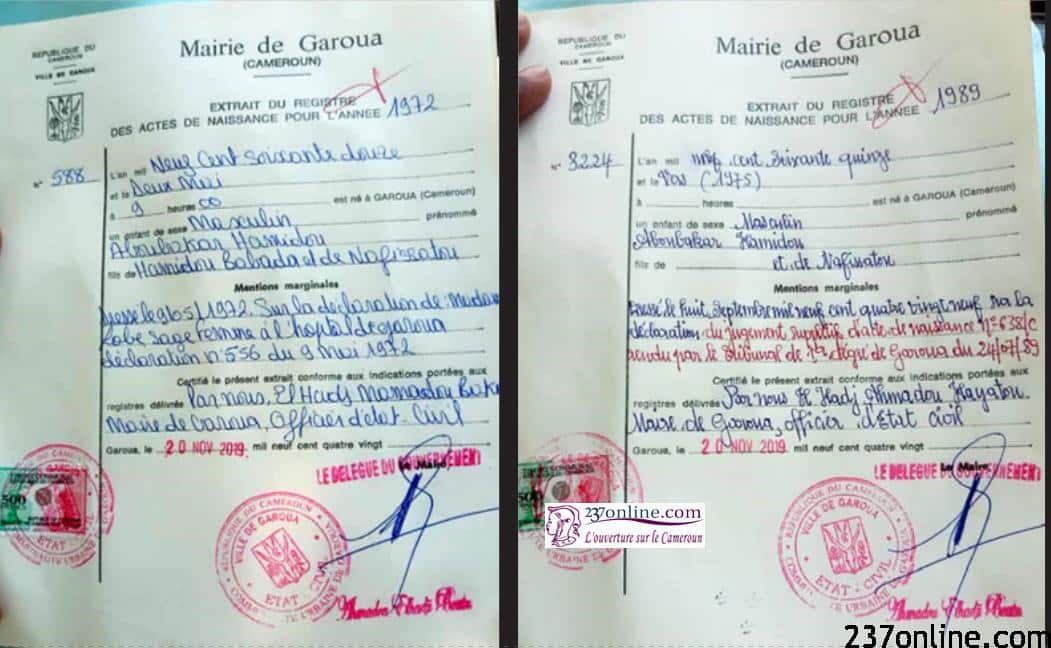 RÉPUBLIQUE DU
CAMEROUN
VILLE DE GAROUA
Mairie de Garoua
(CAMEROUN)
EXTRAIT DU REGISTRE
DES ACTES DE NAISSANCE POUR L'ANNEE 1972
N° 588
L'an mil Neuf Cent Soixante douze
et le Deux Mai
à 9 heures 00 est né à GAROUA (Cameroun)
un enfant de sexe Masculin prénommé
Aboubakar Hamidou
fils de Hamidou Babada et de Nafissatou
Mentions marginales
Dressé le 9/05/1972. Sur la déclaration de
Sage Femme à l'hopital de garoua
déclaration n° 556 du 9 mai 1972
Certifié le présent extrait conforme aux indications portées aux
registres délivrés Par nous, El Hadj Mamadou
Maire de Garoua, Officier d'état-Civil
Garoua, le 20 NOV 2019 mil neuf cent quatre vingt
LE DELEGUE DU GOUVERNEMENT
Le Maire,
500
REPUBLIQUE DU CAMEROUN
VILLE DE GAROUA
ETAT-CIVIL
RÉPUBLIQUE DU
CAMEROUN
VILLE DE GAROUA
Mairie de Garoua
(CAMEROUN)
EXTRAIT DU REGISTRE
DES ACTES DE NAISSANCE POUR L'ANNEE 1989
N° 3224
L'an mil neuf cent Soixante quinze
et le Vers (1975)
à heures est né à GAROUA (Cameroun)
un enfant de sexe Masculin prénommé
Aboubakar Hamidou
fils de et de Nafissatou
Mentions marginales
Dressé le huit Septembre mil neuf cent quatre vingt neuf sur la
déclaration du jugement supplétif d'acte de naissance N° 638/C
rendu par le Tribunal de 1er dégré de Garoua du 24/07/89
Certifié le présent extrait conforme aux indications portées aux
registres délivrés Par nous El Hadj Ahmadou Hayatou
Maire de Garoua, officier d'État Civil
Garoua, le 20 NOV 2019 mil neuf cent quatre vingt
LE DELEGUE DU GOUVERNEMENT
Le Maire,
REPUBLIQUE DU CAMEROUN
VILLE DE GAROUA
ETAT-CIVIL
237online.com
L'ouverture sur le Cameroun
237online.com